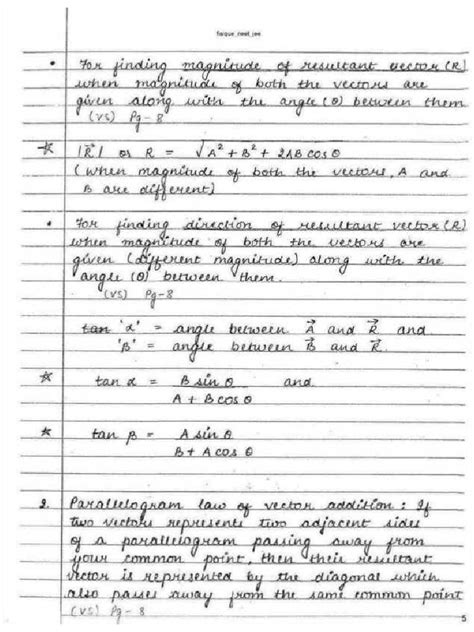 fisique_neet_jee
• For finding magnitude of resultant vector (R)
when magnitude of both the vectors are
given along with the angle (θ) between them
(VS) Pg-8
☆ |R⃗| or R = √A² + B² + 2AB cos θ
(when magnitude of both the vectors, A and
B are different)
• For finding direction of resultant vector (R)
when magnitude of both the vectors are
given (different magnitude) along with the
angle (θ) between them.
(VS) Pg-8
tan 'α' = angle between A⃗ and R⃗ and
'β' = angle between B⃗ and R⃗.
☆ tan α = B sin θ and
A + B cos θ
☆ tan β = A sin θ
B + A cos θ
2. Parallelogram law of vector addition: If
two vectors represents two adjacent sides
of a parallelogram passing away from
your common point, then their resultant
vector is represented by the diagonal which
also passes away from the same common point
(VS) Pg-8
5